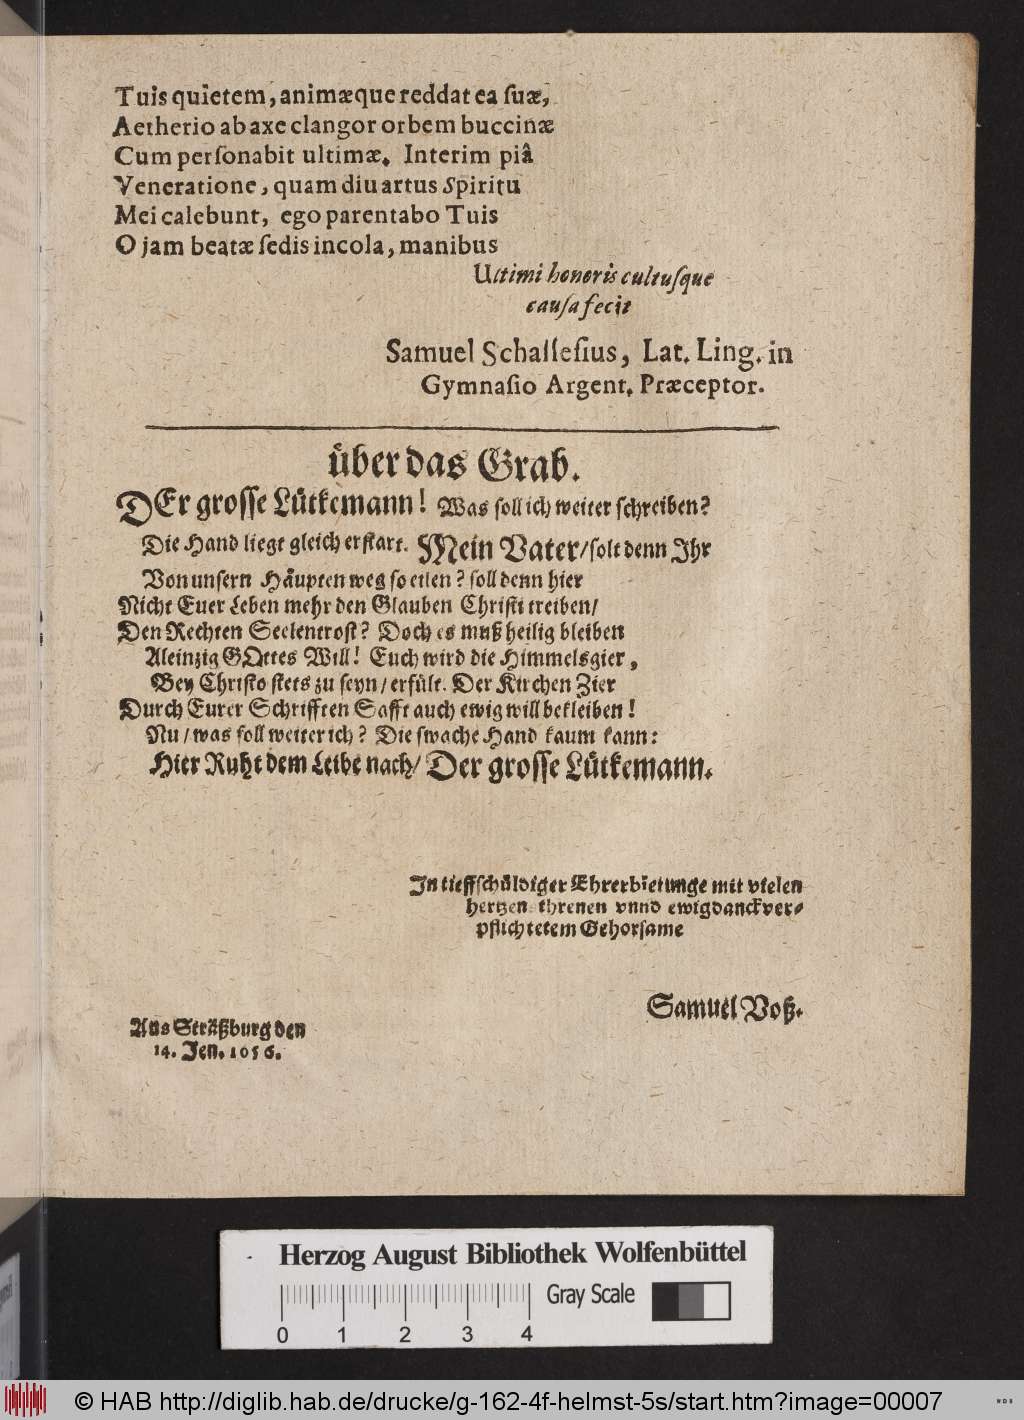 Tuis quietem, animæque reddat ea ſuæ,
Aetherio ab axe clangor orbem buccinæ
Cum perſonabit ultimæ. Interim piâ
Veneratione, quam diu artus Spiritu
Mei calebunt, ego parentabo Tuis
O jam beatæ ſedis incola, manibus
Ultimi honoris cultuſque
cauſa fecit
Samuel Schalleſius, Lat. Ling. in
Gymnaſio Argent. Præceptor.
über das Grab.
DEr groſſe Lütkemann! Was ſoll ich weiter ſchreiben?
Die Hand liegt gleich erſtart. Mein Vater/ ſolt denn Ihr
Von unſern Häupten weg ſo eilen? ſoll denn hier
Nicht Euer Leben mehr den Glauben Chriſti treiben/
Den Rechten Seelentroſt? Doch es muß heilig bleiben
Aleinzig GOttes Will! Euch wird die Himmelsgier,
Bey Chriſto ſtets zu ſeyn/ erfült. Der Kirchen Zier
Durch Eurer Schrifften Safft auch ewig will bekleiben!
Nu/ was ſoll weiter ich? Die ſwache Hand kaum kann:
Hier Ruht dem Leibe nach/ Der groſſe Lütkemann.
In tieffſchüldiger Ehrerbietunge mit vielen
hertzen threnen vnnd ewigdanckver-
pflichtetem Gehorſame
Samuel Voß.
Aus Sträßburg den
14. Jen. 1656.
Herzog August Bibliothek Wolfenbüttel
Gray Scale
0 1 2 3 4
© HAB http://diglib.hab.de/drucke/g-162-4f-helmst-5s/start.htm?image=00007